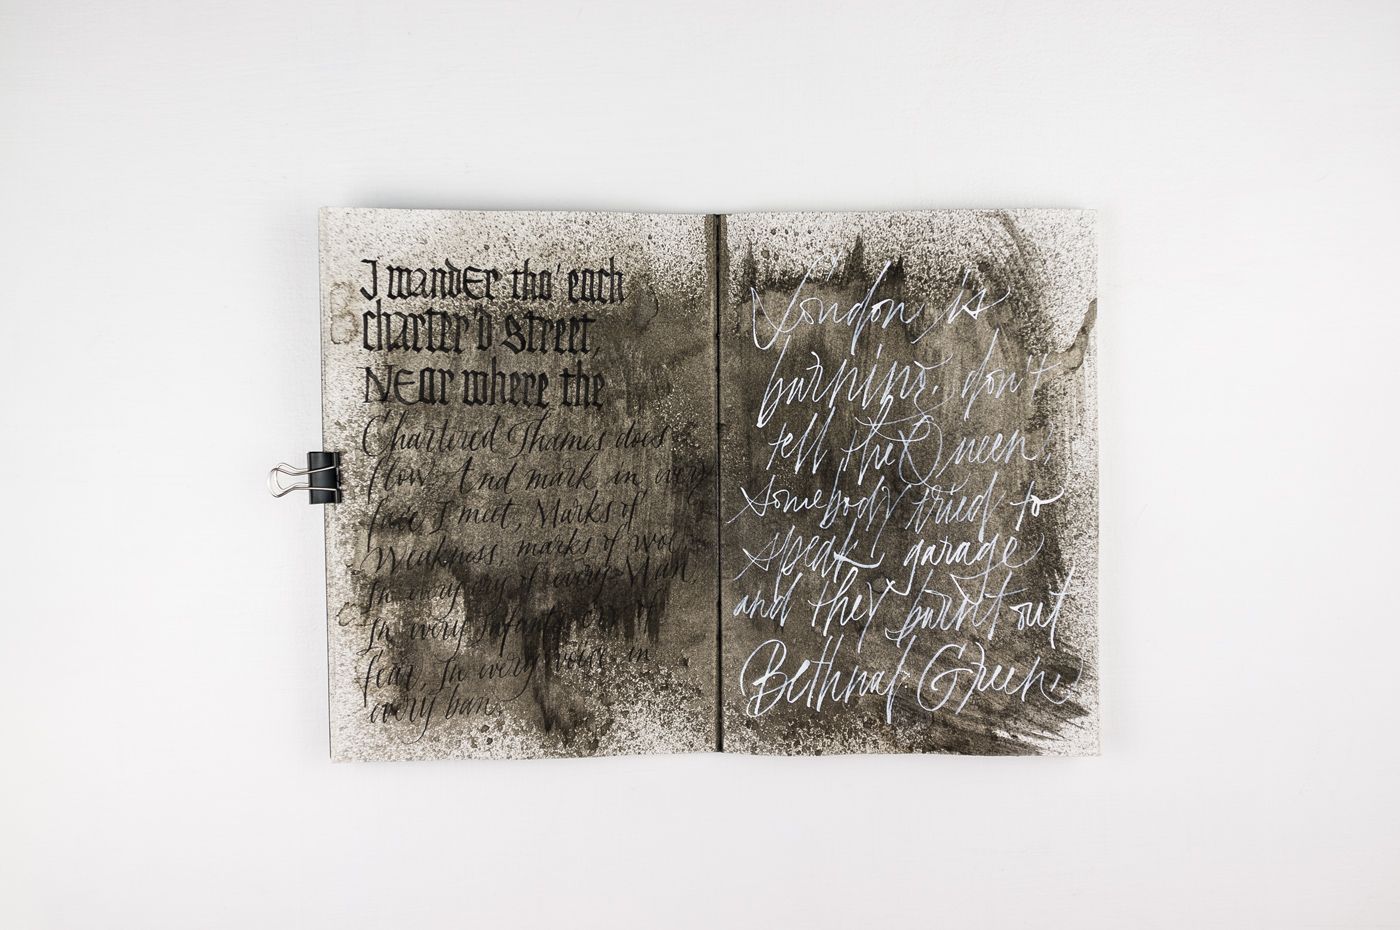 I wander tho' each
charter'd street,
NEar where the
Chartered Thames does
flow. And mark in every
face I meet, Marks of
Weakness, marks of woe
In every cry of every Man,
In every Infants cry of
fear, In every voice, in
every ban.
London is
burning, don't
tell the Queen,
somebody tried to
speak garage
and they burnt out
Bethnal Green,